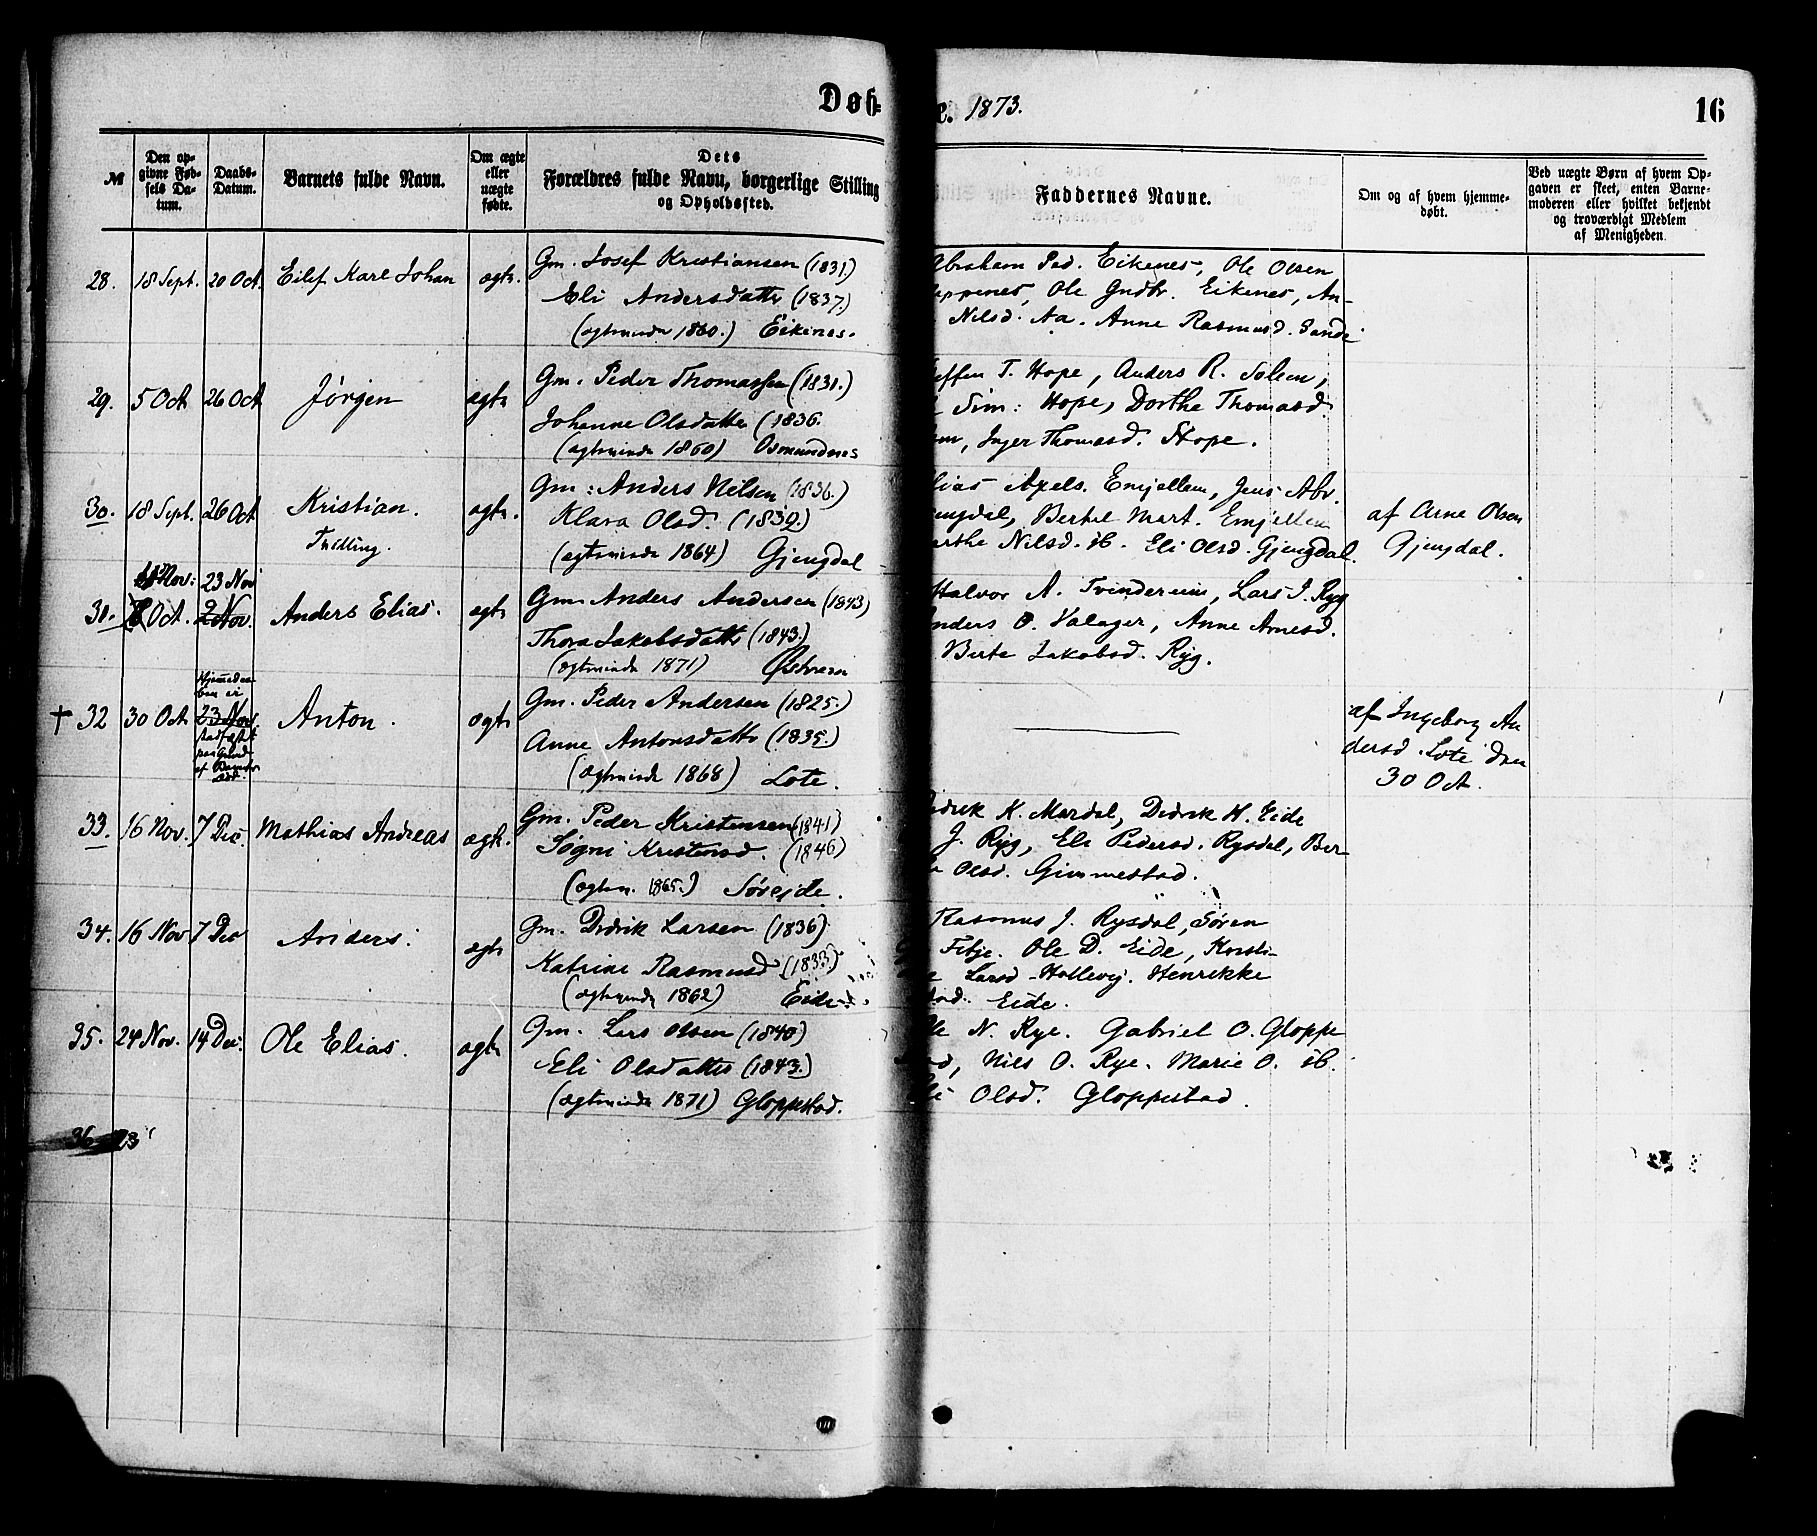 Døb-
e. 1873.
16
№
Den op-
givne Fød-
sels Da-
tum.
Daabs-
Datum.
Barnets fulde Navn.
Om ægte
eller
uægte
fødte.
Dets
Forældres fulde Navn, borgerlige Stilling
og Opholdssted.
Faddernes Navne.
Om og af hvem hjemme-
døbt.
Ved uægte Børn af hvem Op-
gaven er skeet, enten Barne-
moderen eller hvilket bekjendt
og troværdigt Medlem
af Menigheden.
28. 18 Sept. 20 Oct. Eilef Karl Johan ægte. Gm. Josef Kristiansen (1831)
Eli Andersdatter (1837.)
(ægteviede 1860.) Eikenes.
Abraham Ped. Eikenes, Ole Olsen
Ole Gudbr. Eikenes, An-
Nilsd. Aa. Anne Rasmusd. Sande
29. 5 Oct 26 Oct Jørgen ægte Gm. Peder Thomassen (1831.)
Johanne Olsdatter (1836.
(ægteviede 1860) Osmundnes
effen T. Hope, Anders R. Solem,
Sim: Hope, Dorthe Thomasd.
Inger Thomasd. Hope.
30. 18 Sept. 26 Oct Kristian. ægte. Gm: Anders Nilsen (1836.)
Tvilling.
Klara Olsd. (1839.)
(ægteviede 1864) Gjengdal
lias Axels. Emjellem, Jens Abr.
engdal, Bertel Mart. Emjellem
arthe Nilsd. ib. Eli Olsd. Gjengdal.
af Arne Olsen
Gjengdal.
Nov: 23 Nov
31. 8 Oct. 2 Nov. Anders Elias. ægte Gm Anders Andersen (1843)
Thora Jakobsdatter (1843.)
(ægteviede 1871)
Halvor A. Tvindereim, Lars J. Ryg
nders O. Valager, Anne Arnesd.
Berte Jakobsd. Ryg.
† 32 30 Oct 23 Nov. Anton. ægte Gm. Peder Andersen (1825.)
Anne Antonsdatter (1835.)
(ægteviede 1868) Lote.
af Ingeborg An
dersd. Lote den
30 Oct.
33. 16 Nov. 7 Dec. Mathias Andreas ægte. Gm. Peder Kristensen (1841)
Søgni Kristensd. (1846)
(ægtev. 1865.) Søreide.
idrek K. Mardal, Didrik H. Eide
J. Ryg, Eli Pedersd. Rysdal, Ber-
Olsd. Gimmestad.
34. 16 Nov 7 Dec Anders. ægte Gm. Didrik Larsen (1836)
Katrine Rasmusd (1833)
(ægteviede 1862) Eide
Rasmus J. Rysdal, Søren
Fitje. Ole D. Eide, Kersti-
Larsd Hollevej. Henrikke
Eide.
35. 24 Nov. 14 Dec. Ole Elias. ægte Gm. Lars Olsen (1840)
Eli Olsdatter (1843.)
(ægteviede 1871) Gloppestad.
le N. Rye. Gabriel O. Gloppe
ad, Nils O. Rye. Marie O. ib.
li Olsd. Gloppestad.
36 23